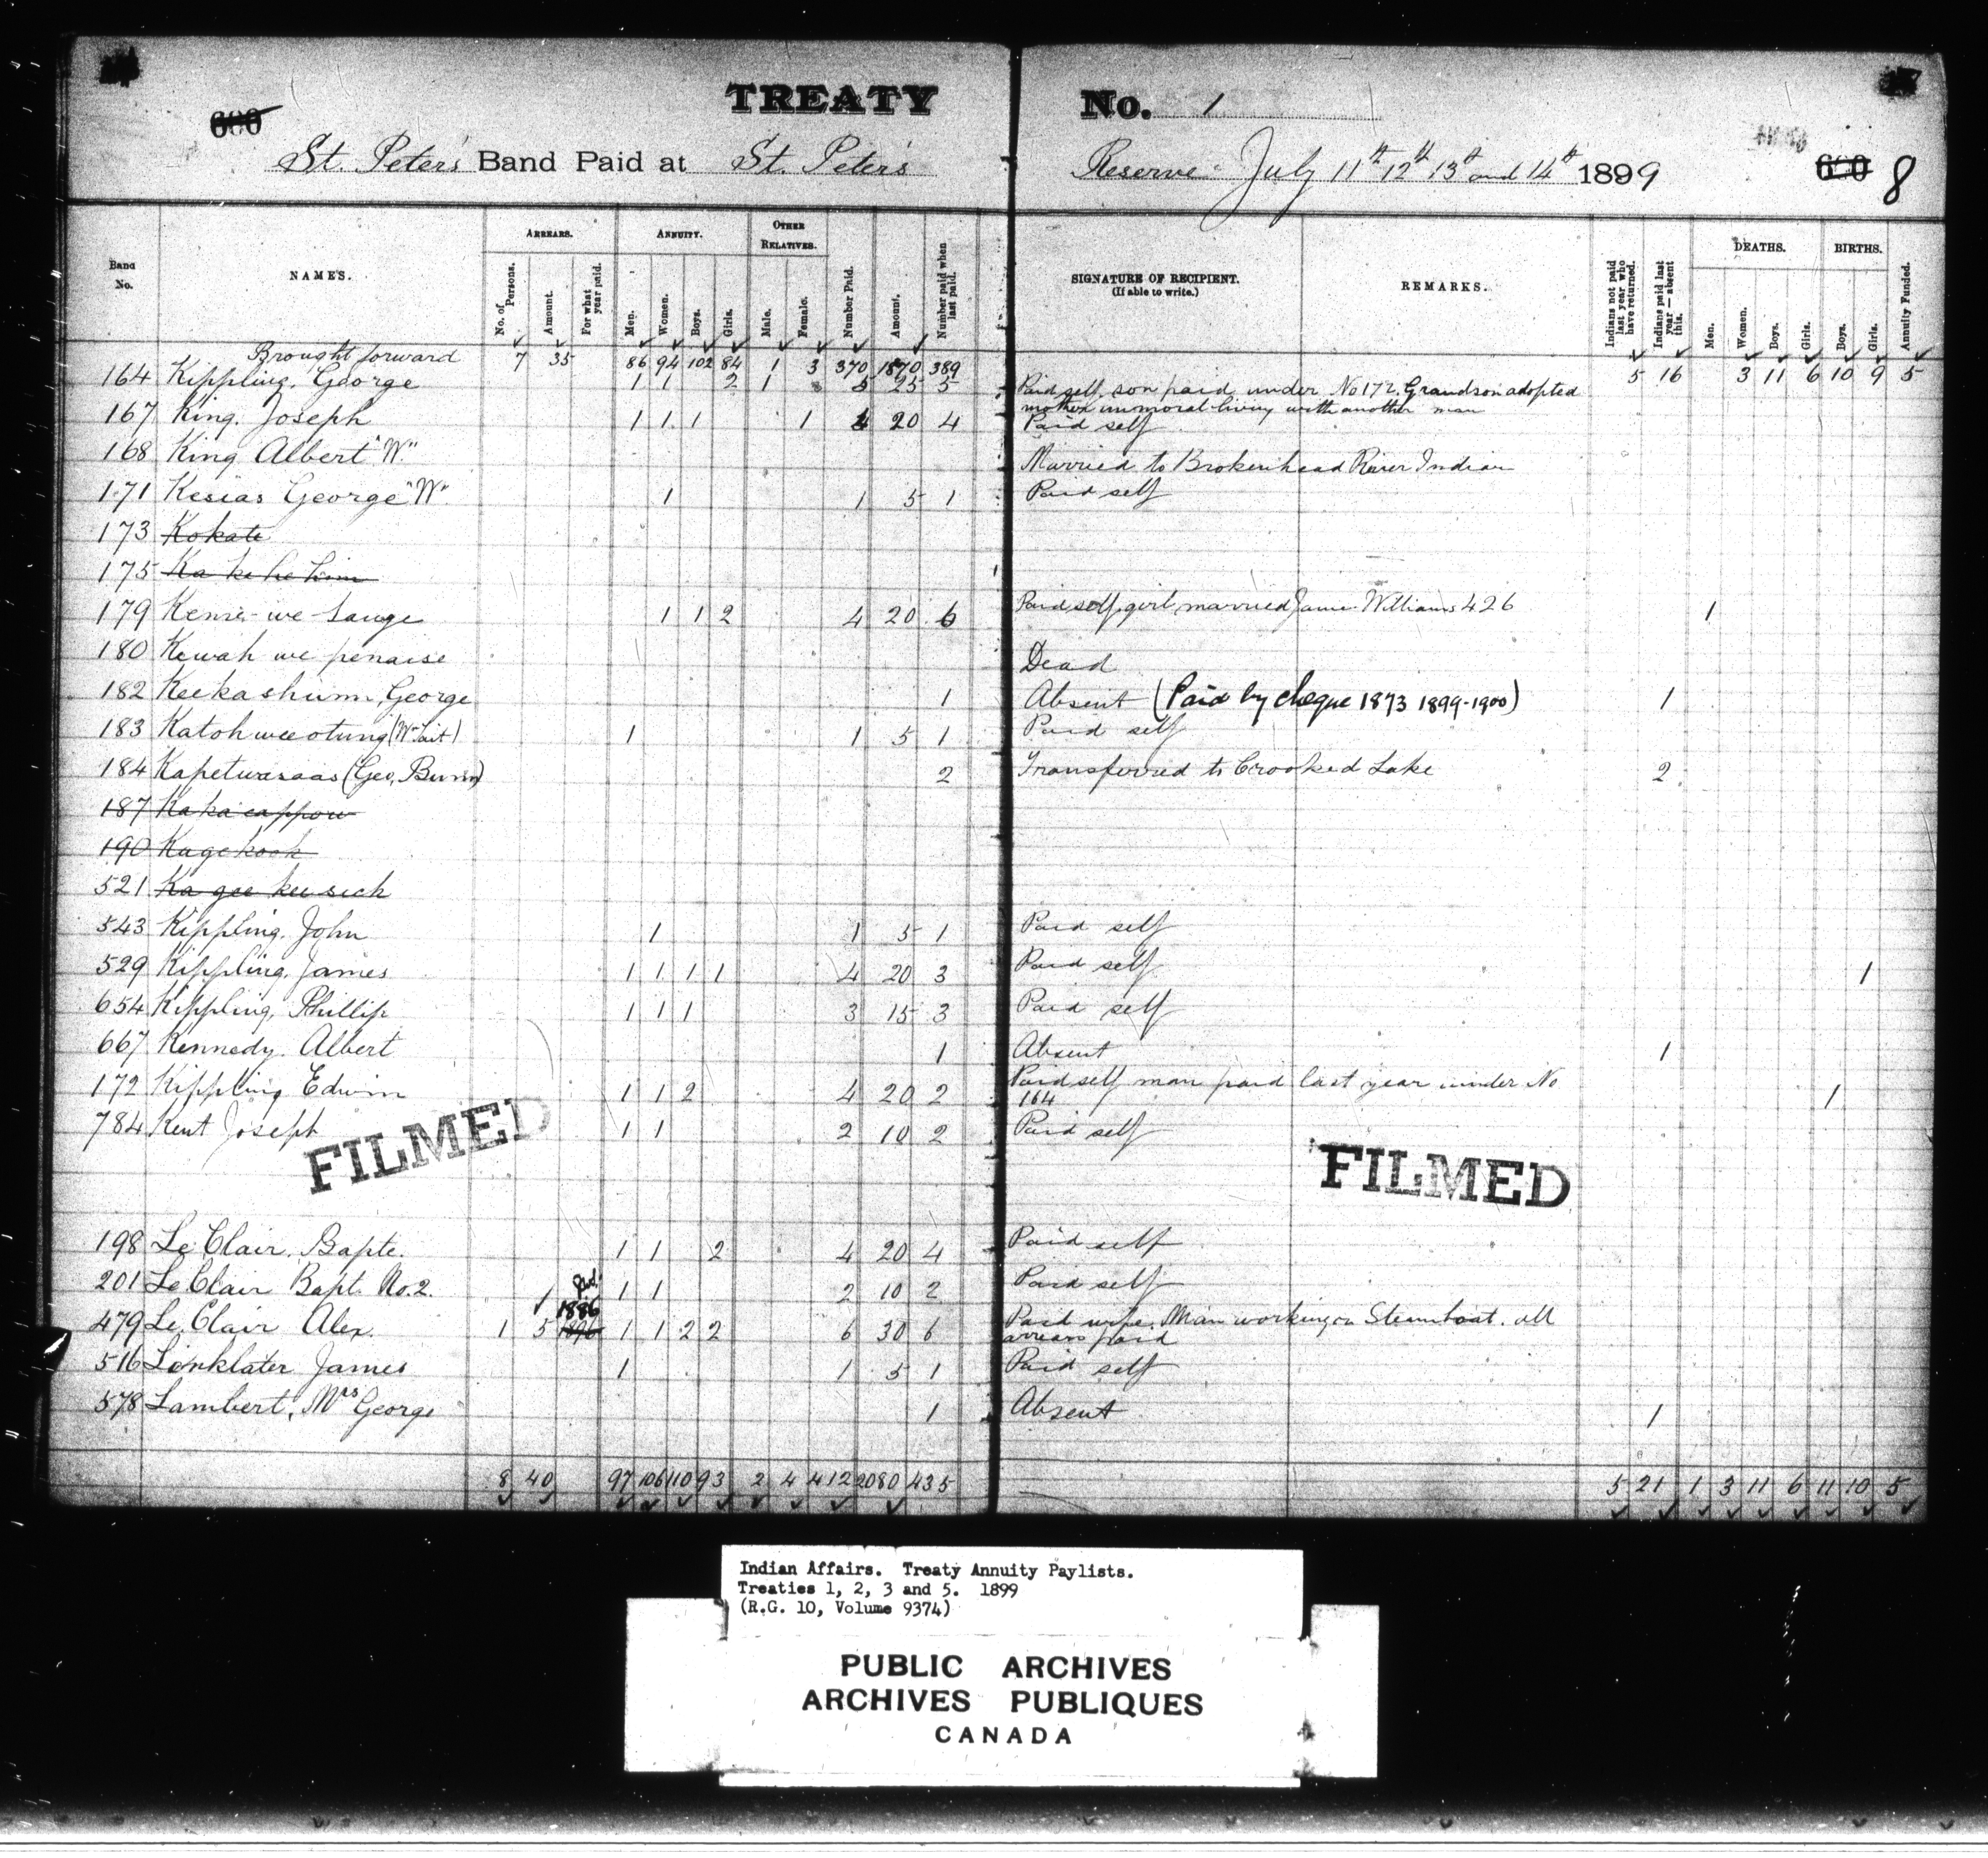 TREATY No. 1
600 600 8
St. Peter's Band Paid at St. Peter's Reserve July 11th 12th 13th and 14th 1899
Band No. NAMES. ARREARS. No. of Persons. Amount. For what year paid. ANNUITY. Men. Women. Boys. Girls. OTHER RELATIVES. Male. Female. Number Paid. Amount. Number paid when last paid. SIGNATURE OF RECIPIENT. (If able to write.) REMARKS. Indians not paid last year who have returned. Indians paid last year — absent this. DEATHS. Men. Women. Boys. Girls. BIRTHS. Boys. Girls. Annuity Funded.
Brought forward 7 35 86 94 102 84 1 3 370 1870 389 5 16 3 11 6 10 9 5
164 Kippling, George 1 1 2 1 5 25 5 Paid self, son paid under No 172, Grandson adopted
mother immoral living with another man
167 King, Joseph 1 1 1 1 4 20 4 Paid self
168 King Albert "W." Married to Brokenhead River Indian
171 Kesias George "W" 1 1 5 1 Paid self
173 Kokate
175 Ka ke he
179 1 1 2 4 20 6 Paid self, girl married James Williams 426 1
180 Kewah we penaise Dead
182 Keekashunn, George 1 Absent (Paid by cheque 1873 1899-1900) 1
183 Katohweeotung (Wm Tait) 1 1 5 1 Paid self
184 Kapetwasaas (Geo, Bunn) 2 Transferred to Crooked Lake 2
187 Kaka cappow
190 Kagekook
521 Ka gee kee sick
543 Kippling, John 1 1 5 1 Paid self
529 Kippling, James 1 1 1 1 4 20 3 Paid self 1
654 Kippling, Phillip 1 1 1 3 15 3 Paid self
667 Kennedy, Albert 1 Absent 1
172 Kippling Edwin 1 1 2 4 20 2 Paid self man paid last year under No
164 1
784 Kent Joseph 1 1 2 10 2 Paid self
FILMED FILMED
198 Le Clair, Bapte. 1 1 2 4 20 4 Paid self
201 Le Clair Bapt. No. 2. 1 1 2 10 2 Paid self
1886
479 Le Clair Alex. 1 5 1896 1 1 2 2 6 30 6 Paid wife. Man working on Steamboat. all
arrears paid
516 Linklater James 1 1 5 1 Paid self
578 Lambert, Mrs George 1 Absent 1
8 40 97 106 110 93 2 4 412 2080 435 5 21 1 3 11 6 11 10 5
Indian Affairs. Treaty Annuity Paylists.
Treaties 1, 2, 3 and 5. 1899
(R.G. 10, Volume 9374)
PUBLIC ARCHIVES
ARCHIVES PUBLIQUES
CANADA